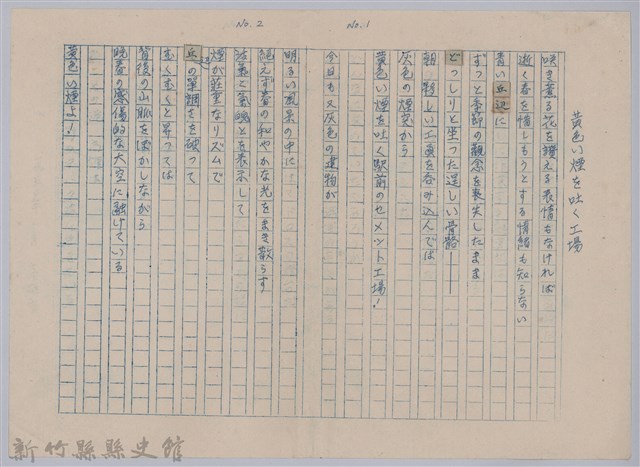 No. 1
黄色い煙を吐く工場
咲き薫る花を讃える表情もなければ
逝く春を惜しもうとする情緒も知らない
青い丘辺に
ずっと季節の観念を喪失したまま
どっしりと坐った逞しい骨骼——
朝っ 物しい工員を呑み込んでは
灰色の煙突から
黄色い煙を吐く駅前のセメント工場！
今日も又灰色の建物が
No. 2
明るい風景の中に
絶えず春の和やかな光をまき散らす
活気と気魄とを表示して
煙が荘重なリズムで
丘辺の単調さを破って
むくむくと昇っては
背後の山脈をぼかしながら
晩春の感傷的な大空に融けている
黄色い煙よ！
新竹縣縣史館